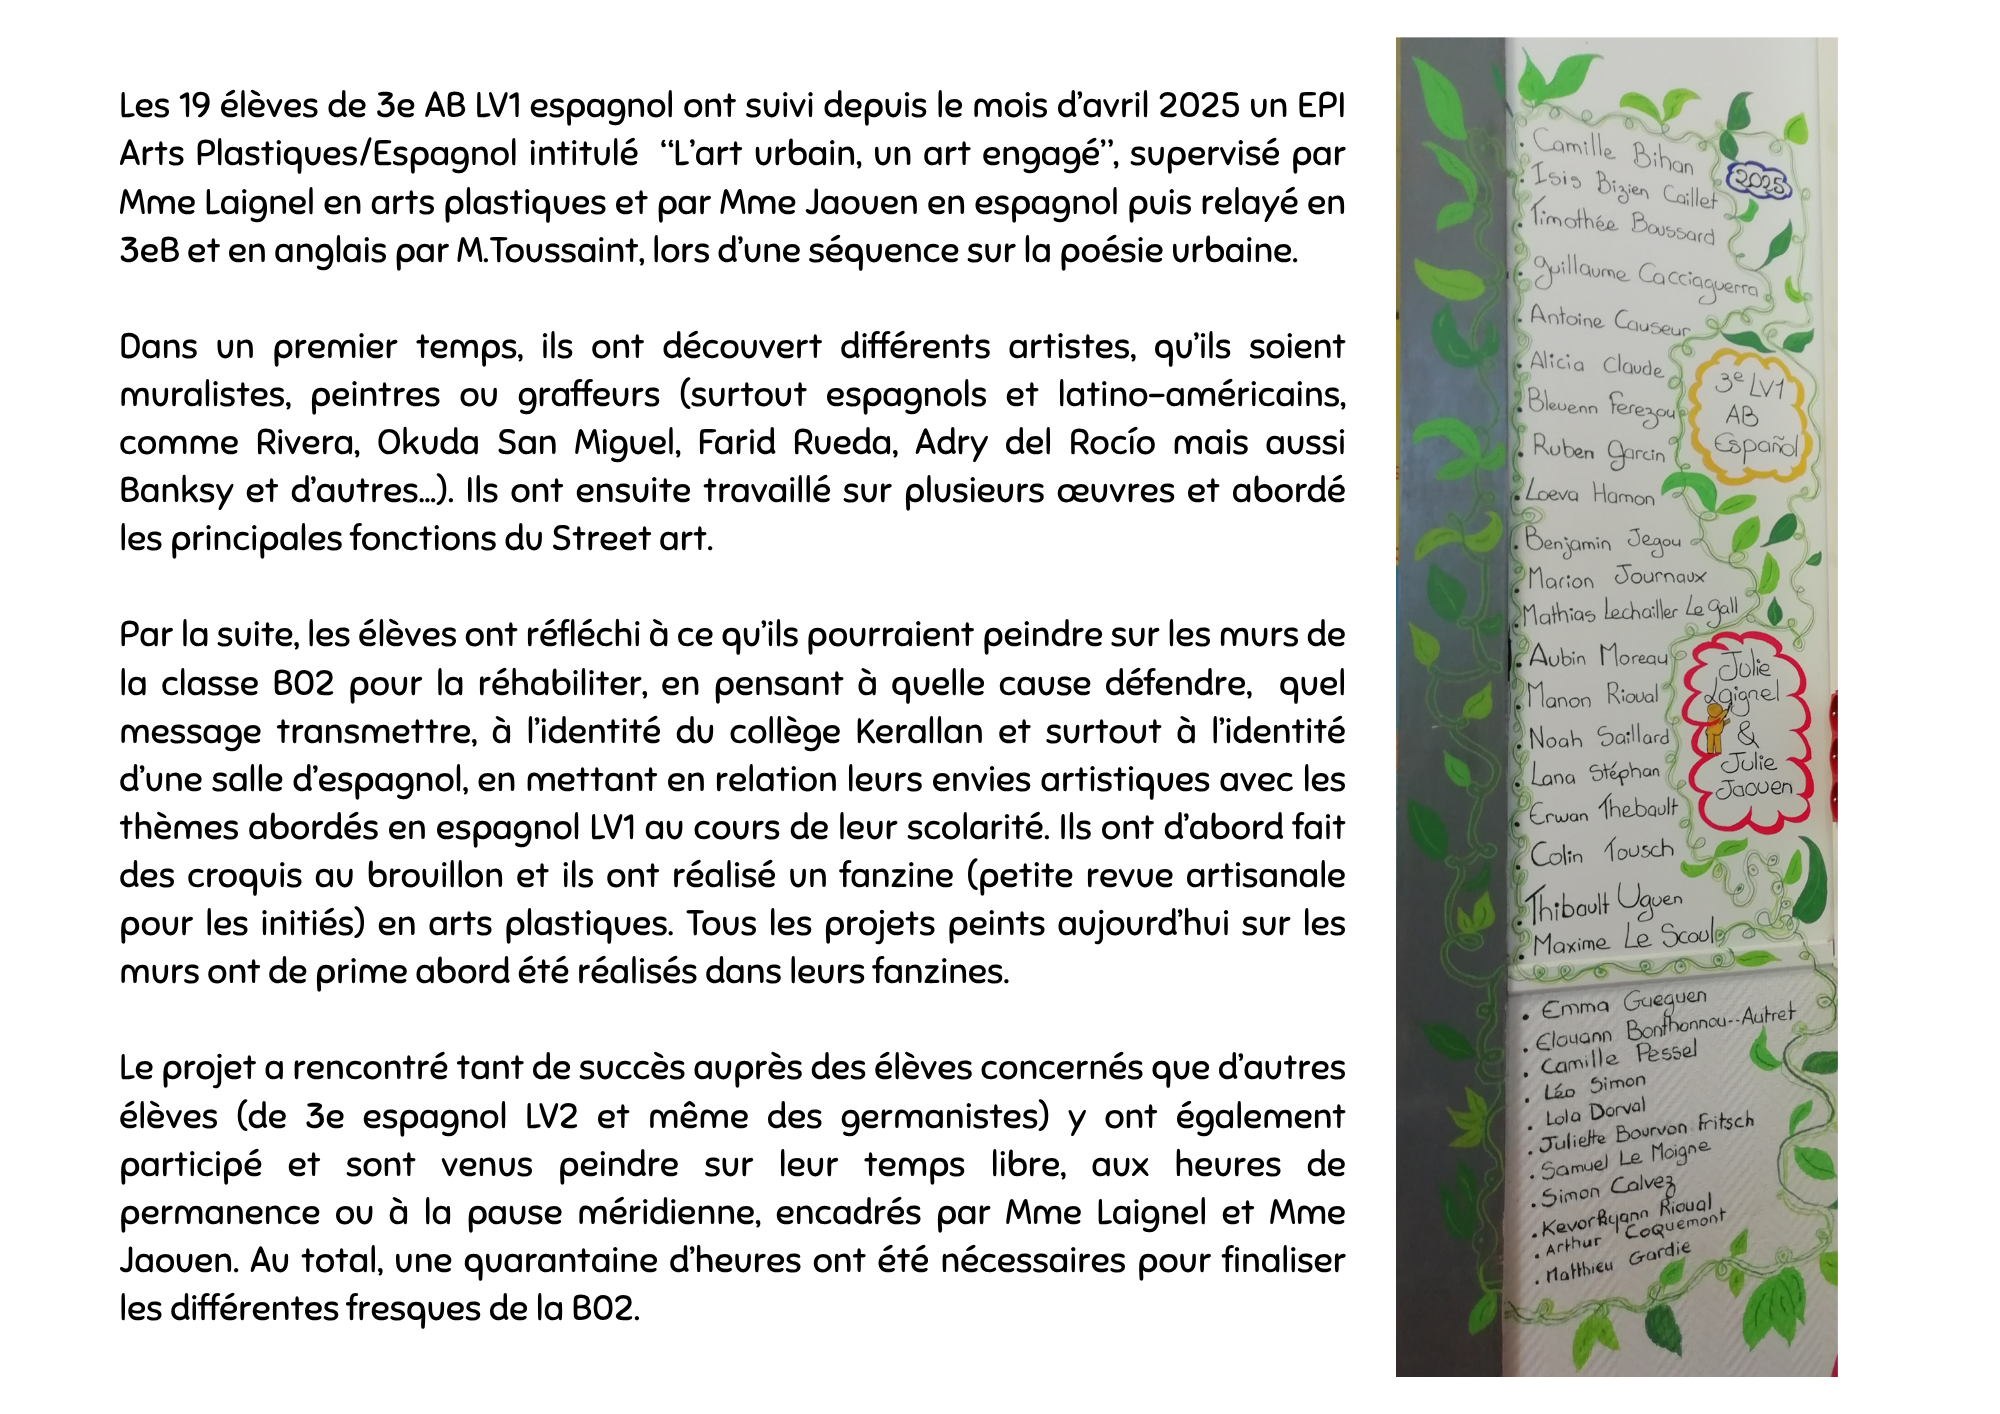 Les 19 élèves de 3e AB LV1 espagnol ont suivi depuis le mois d’avril 2025 un EPI
Arts Plastiques/Espagnol intitulé “L’art urbain, un art engagé”, supervisé par
Mme Laignel en arts plastiques et par Mme Jaouen en espagnol puis relayé en
3eB et en anglais par M.Toussaint, lors d’une séquence sur la poésie urbaine.
Dans un premier temps, ils ont découvert différents artistes, qu’ils soient
muralistes, peintres ou graffeurs (surtout espagnols et latino-américains,
comme Rivera, Okuda San Miguel, Farid Rueda, Adry del Rocío mais aussi
Banksy et d’autres...). Ils ont ensuite travaillé sur plusieurs œuvres et abordé
les principales fonctions du Street art.
Par la suite, les élèves ont réfléchi à ce qu’ils pourraient peindre sur les murs de
la classe B02 pour la réhabiliter, en pensant à quelle cause défendre, quel
message transmettre, à l’identité du collège Kerallan et surtout à l’identité
d’une salle d’espagnol, en mettant en relation leurs envies artistiques avec les
thèmes abordés en espagnol LV1 au cours de leur scolarité. Ils ont d’abord fait
des croquis au brouillon et ils ont réalisé un fanzine (petite revue artisanale
pour les initiés) en arts plastiques. Tous les projets peints aujourd’hui sur les
murs ont de prime abord été réalisés dans leurs fanzines.
Le projet a rencontré tant de succès auprès des élèves concernés que d’autres
élèves (de 3e espagnol LV2 et même des germanistes) y ont également
participé et sont venus peindre sur leur temps libre, aux heures de
permanence ou à la pause méridienne, encadrés par Mme Laignel et Mme
Jaouen. Au total, une quarantaine d’heures ont été nécessaires pour finaliser
les différentes fresques de la B02.
• Camille Bihan
• Isis Bizien Caillet
2025
• Timothée Boussard
• Guillaume Cacciaguerra
• Antoine Causeur
• Alicia Claude
• Bleuenn Ferezou
• Ruben Garcin
• Loeva Hamon
3e LV1
AB
Español
• Benjamin Jegou
• Marion Journaux
• Mathias Lechailler Le Gall
• Aubin Moreau
• Manon Rioual
• Noah Saillard
• Lana Stéphan
• Erwan Thebault
Julie
Laignel
&
Julie
Jaouen
• Colin Tousch
• Thibault Uguen
• Maxime Le Scoul
• Emma Gueguen
• Elouann Bonthonnou--Autret
• Camille Pessel
• Léo Simon
• Lola Dorval
• Juliette Bourvon Fritsch
• Samuel Le Moigne
• Simon Calvez
• Kevorkyann Rioual
• Arthur Coquemont
• Matthieu Gardie